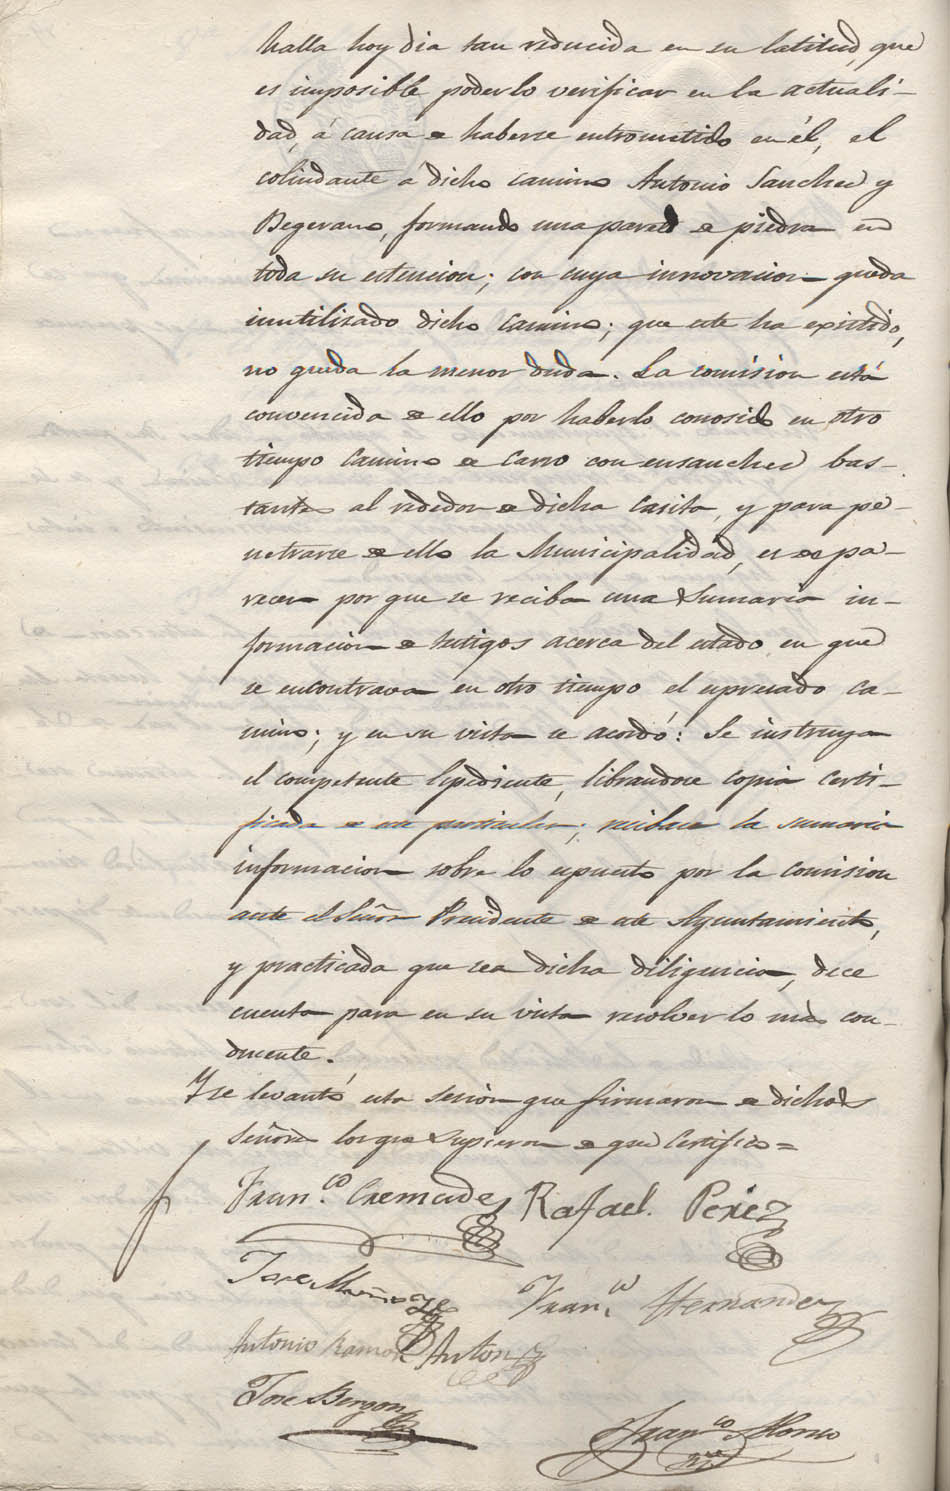 halla hoy dia tan reducida en su latitud, que
es imposible poderlo verificar en la actuali-
dad, á causa de haberse entrometido en él, el
colindante á dicho camino Antonio Sanchez y
Begerano, formando una pared de piedra en
toda su estencion; con cuya innovacion queda
inutilizado dicho camino; que este ha existido,
no queda la menor duda. La comision está
convencida de ello por haberlo conosido en otro
tiempo camino de carro con ensanches bas-
tantes al rededor de dicha casita, y para pe-
netrarse de ello la Municipalidad, es de pa-
recer por que se reciba una Sumaria in-
formacion de testigos acerca del estado en que
se encontrava en otro tiempo el espresado ca-
mino; y en su vista se acordó: Se instruya
el competente Espediente, librandose copia certi-
ficada de este particular; recibase la sumaria
informacion sobre lo espuesto por la comision
ante el Señor Presidente de este Ayuntamiento,
y practicada que sea dicha diligencia, dese
cuenta para en su vista resolver lo mas con-
ducente.
Y se levantó esta sesion que firmaron de dichos
Señores los que supieron de que Certifico=
Fran.co Cremades Rafael. Perez
Jose
Fran.co Hernandez
Antonio Ramon Anton
Jose
Fran.co Alonso